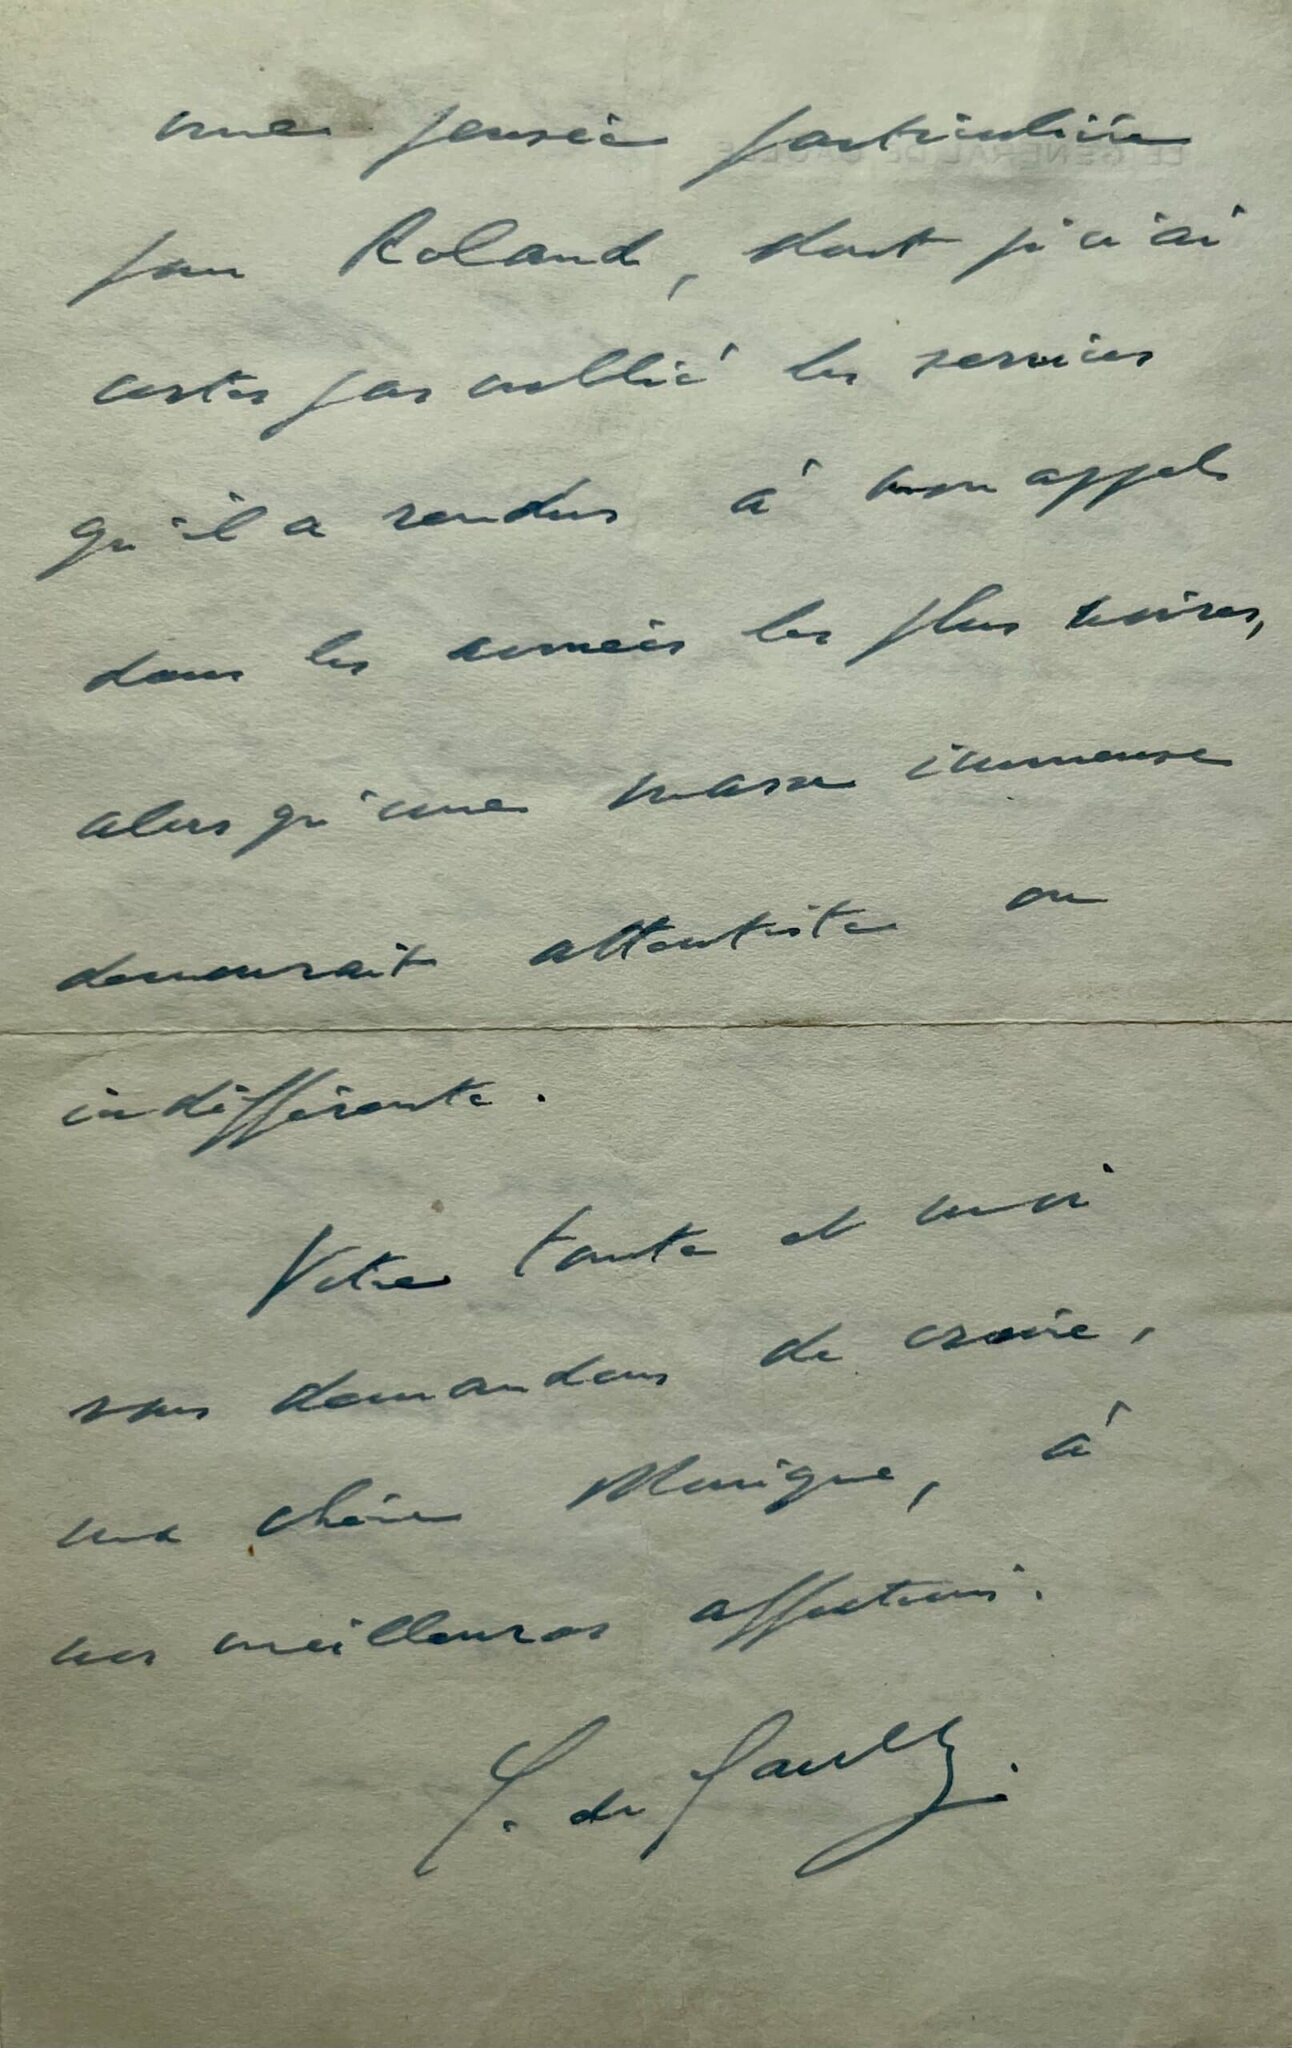 une pensée particulière
LE GÉNÉRAL DE GAULLE
pour Roland, dont je n'ai
certes pas oublié les services
qu'il a rendus à mon appel
dans les années les plus noires,
alors qu'une masse immense
demeurait attentiste ou
indifférente.
Votre tante et moi
vous demandons de croire,
ma chère Monique, à
nos meilleures affections.
C. de Gaulle.